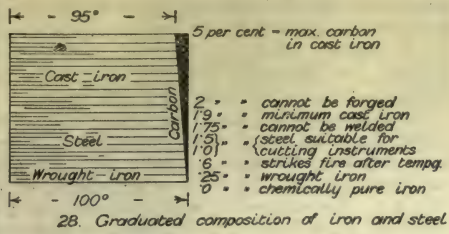 95°
5 per cent = max. carbon
in cast iron
Cast iron
Carbon
Steel
Wrought iron
2 " " cannot be forged
1·9 " " minimum cast iron
1·75 " " cannot be welded
1·5} " {steel suitable for
1·0} " {cutting instruments
·6 " " strikes fire after tempg.
·25 " " wrought iron
·0 " " chemically pure iron
100°
28. Graduated composition of iron and steel